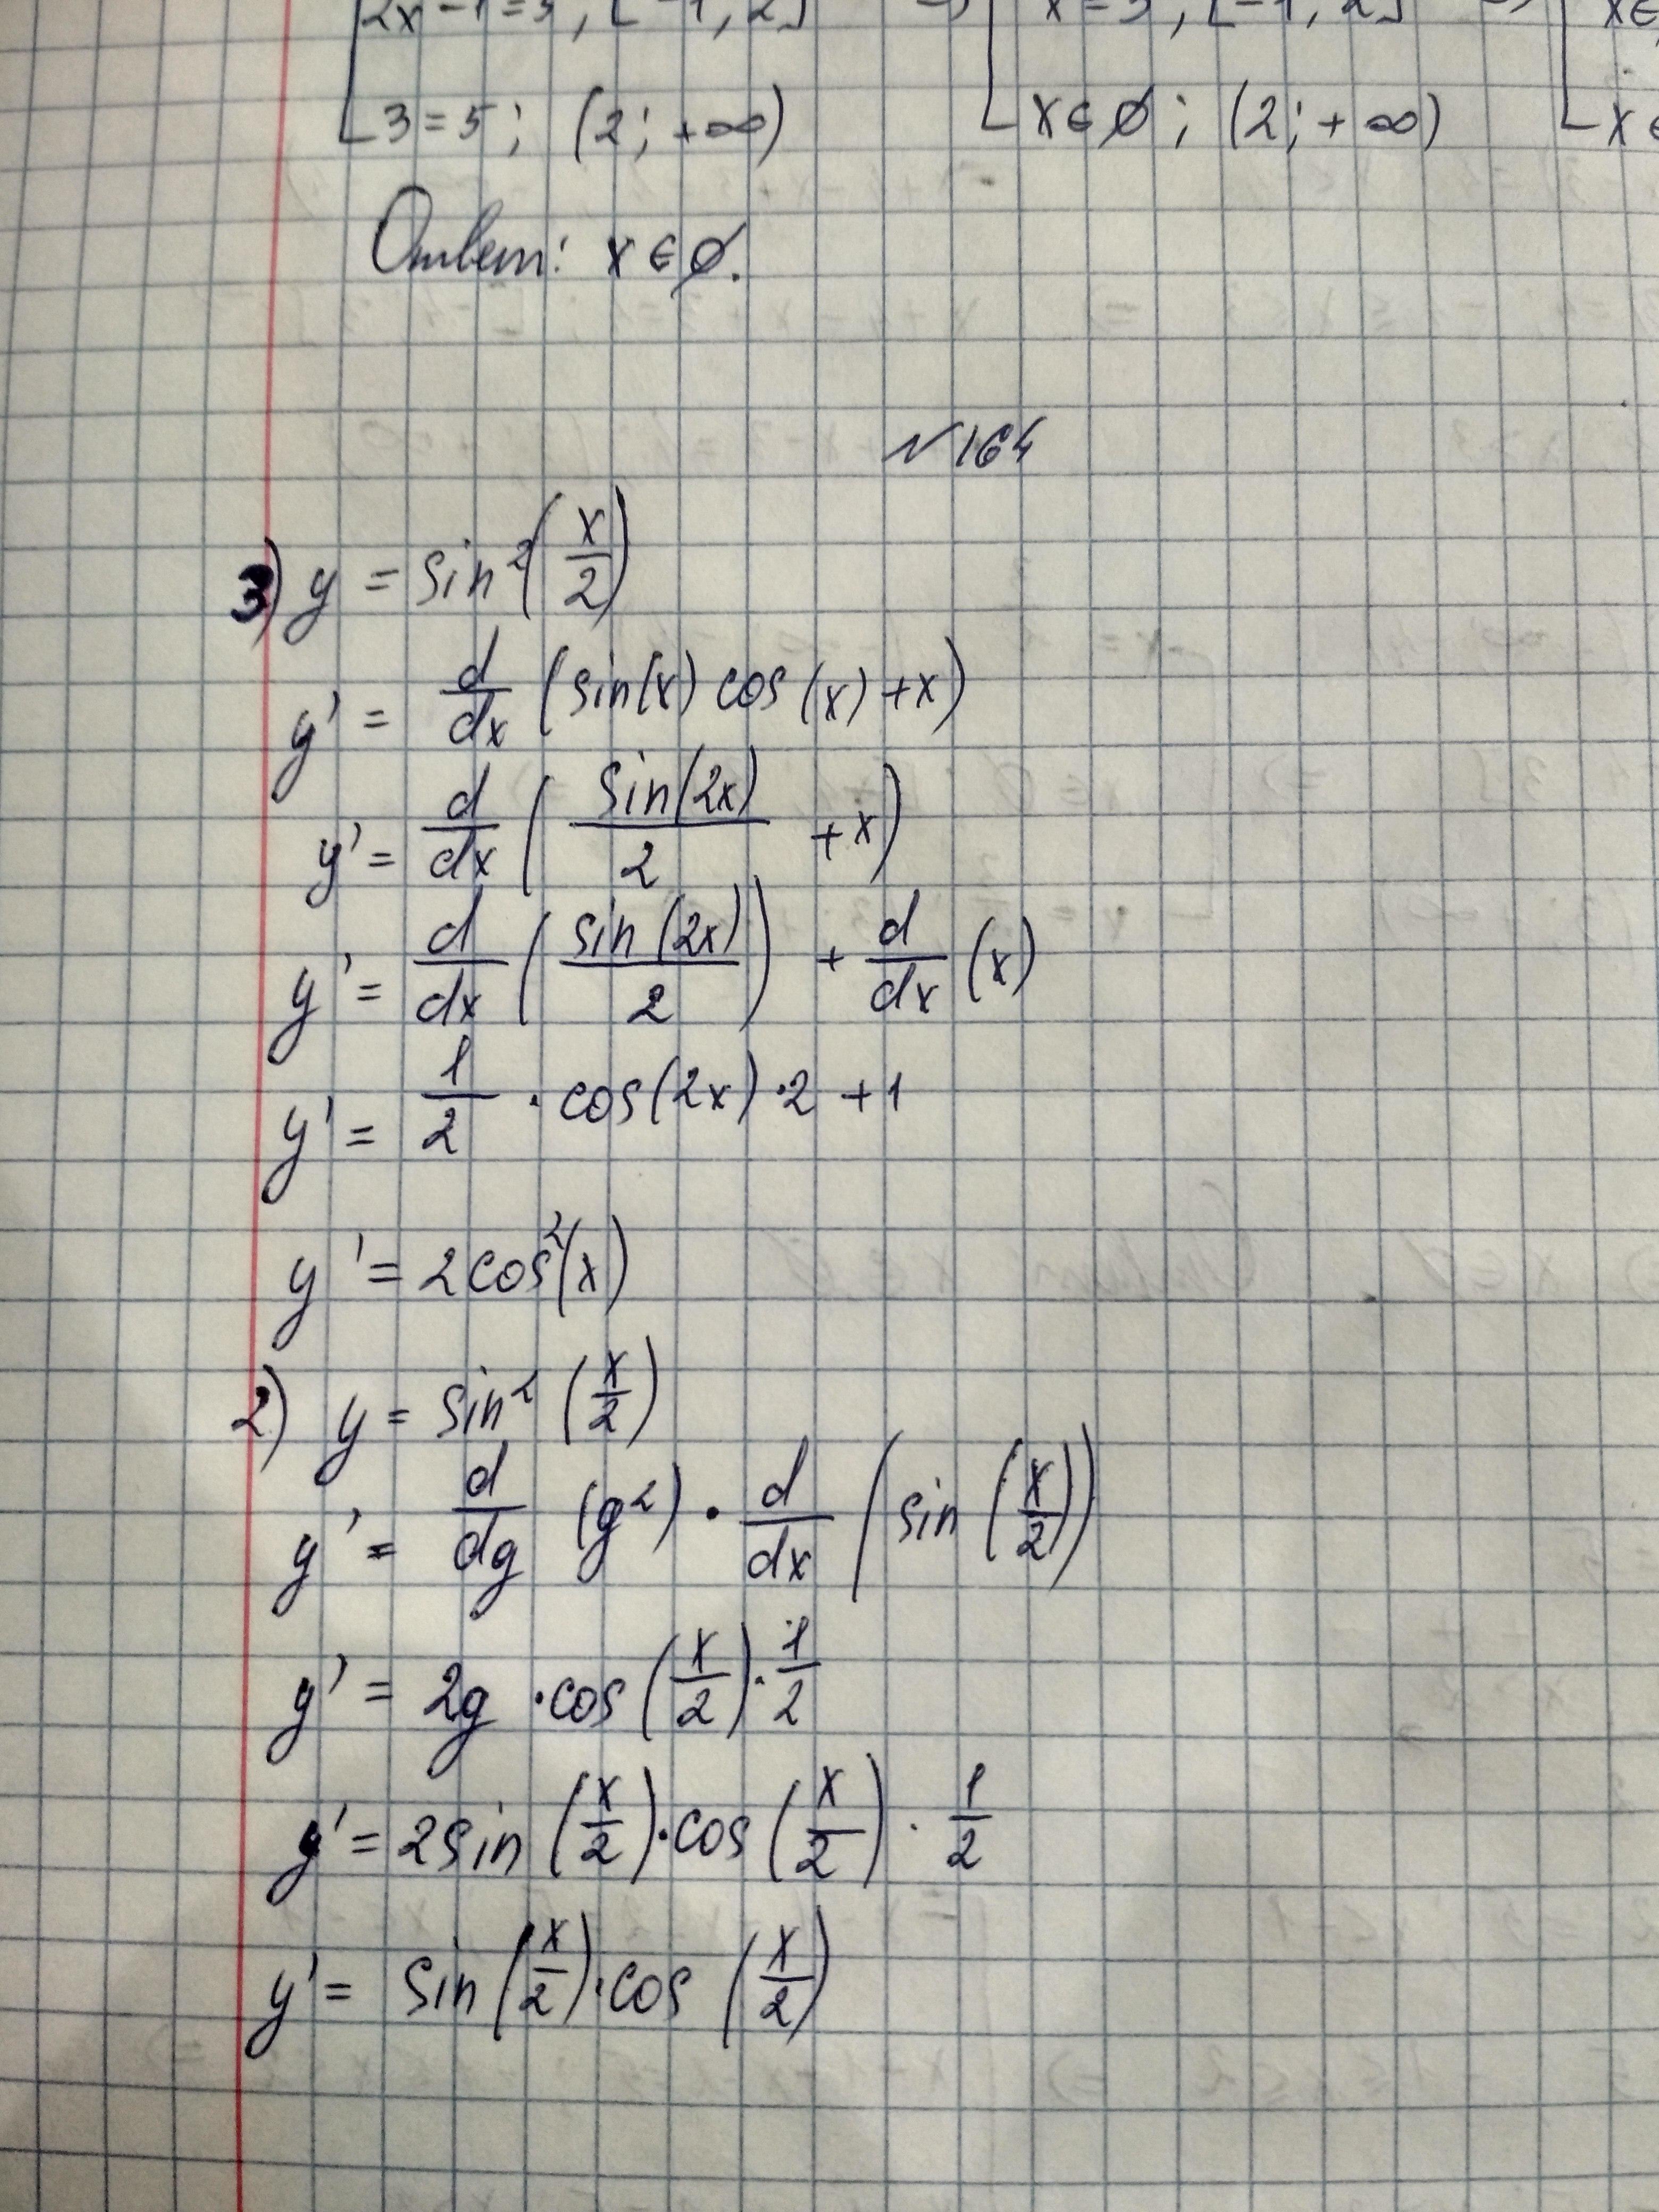 3 = 5 ; (2; +∞) x ∈ ∅ ; (2; +∞)
Ответ: x ∈ ∅.
№164
3) y = sin²(x/2)
y' = d/dx (sin(x) cos(x) + x)
y' = d/dx (sin(2x)/2 + x)
y' = d/dx (sin(2x)/2) + d/dx (x)
y' = 1/2 · cos(2x) · 2 + 1
y' = 2cos²(x)
2) y = sin² (x/2)
y' = d/dg (g²) · d/dx (sin (x/2))
y' = 2g · cos (x/2) · 1/2
y' = 2sin (x/2) · cos (x/2) · 1/2
y' = sin (x/2) · cos (x/2)